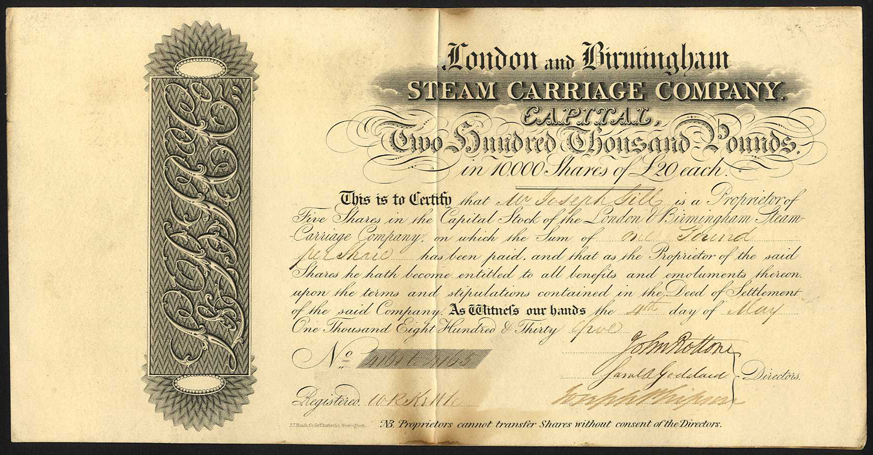 London and Birmingham
STEAM CARRIAGE COMPANY.
CAPITAL,
Two Hundred Thousand Pounds.
in 10,000 Shares of £20 each.
This is to Certify that Mr Joseph Gill is a Proprietor of
Five Shares in the Capital Stock of the London & Birmingham Steam-
Carriage Company, on which the Sum of one Pound
per share has been paid, and that as the Proprietor of the said
Shares he hath become entitled to all benefits and emoluments thereon
upon the terms and stipulations contained in the Deed of Settlement
of the said Company. As Witness our hands the 4th day of May
One Thousand Eight Hundred & Thirty five
No 4161 to 4165
John Rotton
Goddard Directors.
Registered.
NB. Proprietors cannot transfer Shares without consent of the Directors.